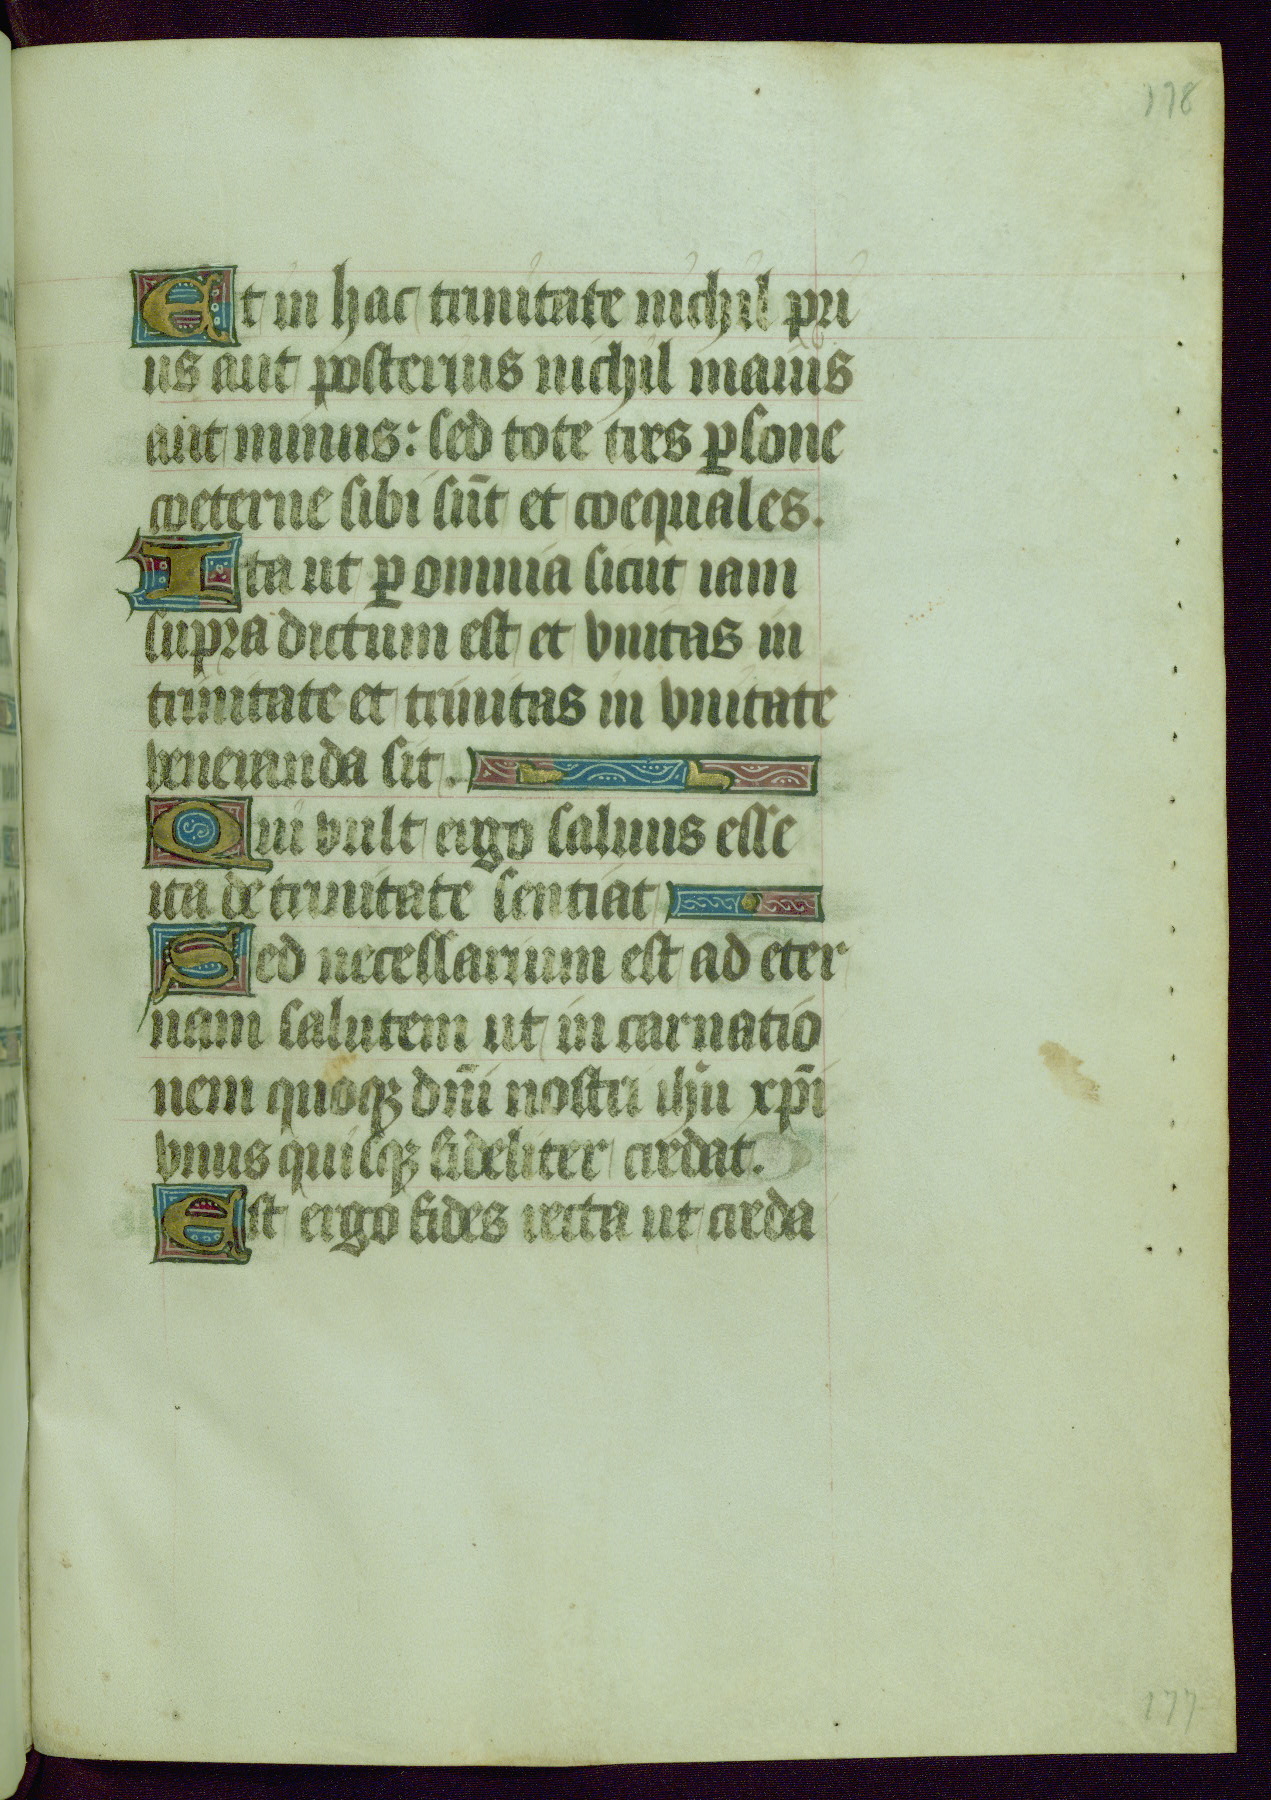 178
Et in hac trinitate nichil pri
us aut posterius nichil maius
aut minus: sed tote tres ꝑsone
coeterne sibi sūt et coequales.
Ita ut ꝑ omnia sicut iam
supra dictum est et vnitas in
trinitate et trinitas in vnitate
veneranda sit.
Qui vult ergo saluus esse
ita de trinitate sentiat
Sed necessarium est ad eter
nam salutem ut in carnatio
nem quoqꝫ dn̄i nostri ihū xp̄i
vnus quisqꝫ fideliter credat.
Est ergo fides recta ut creda
177